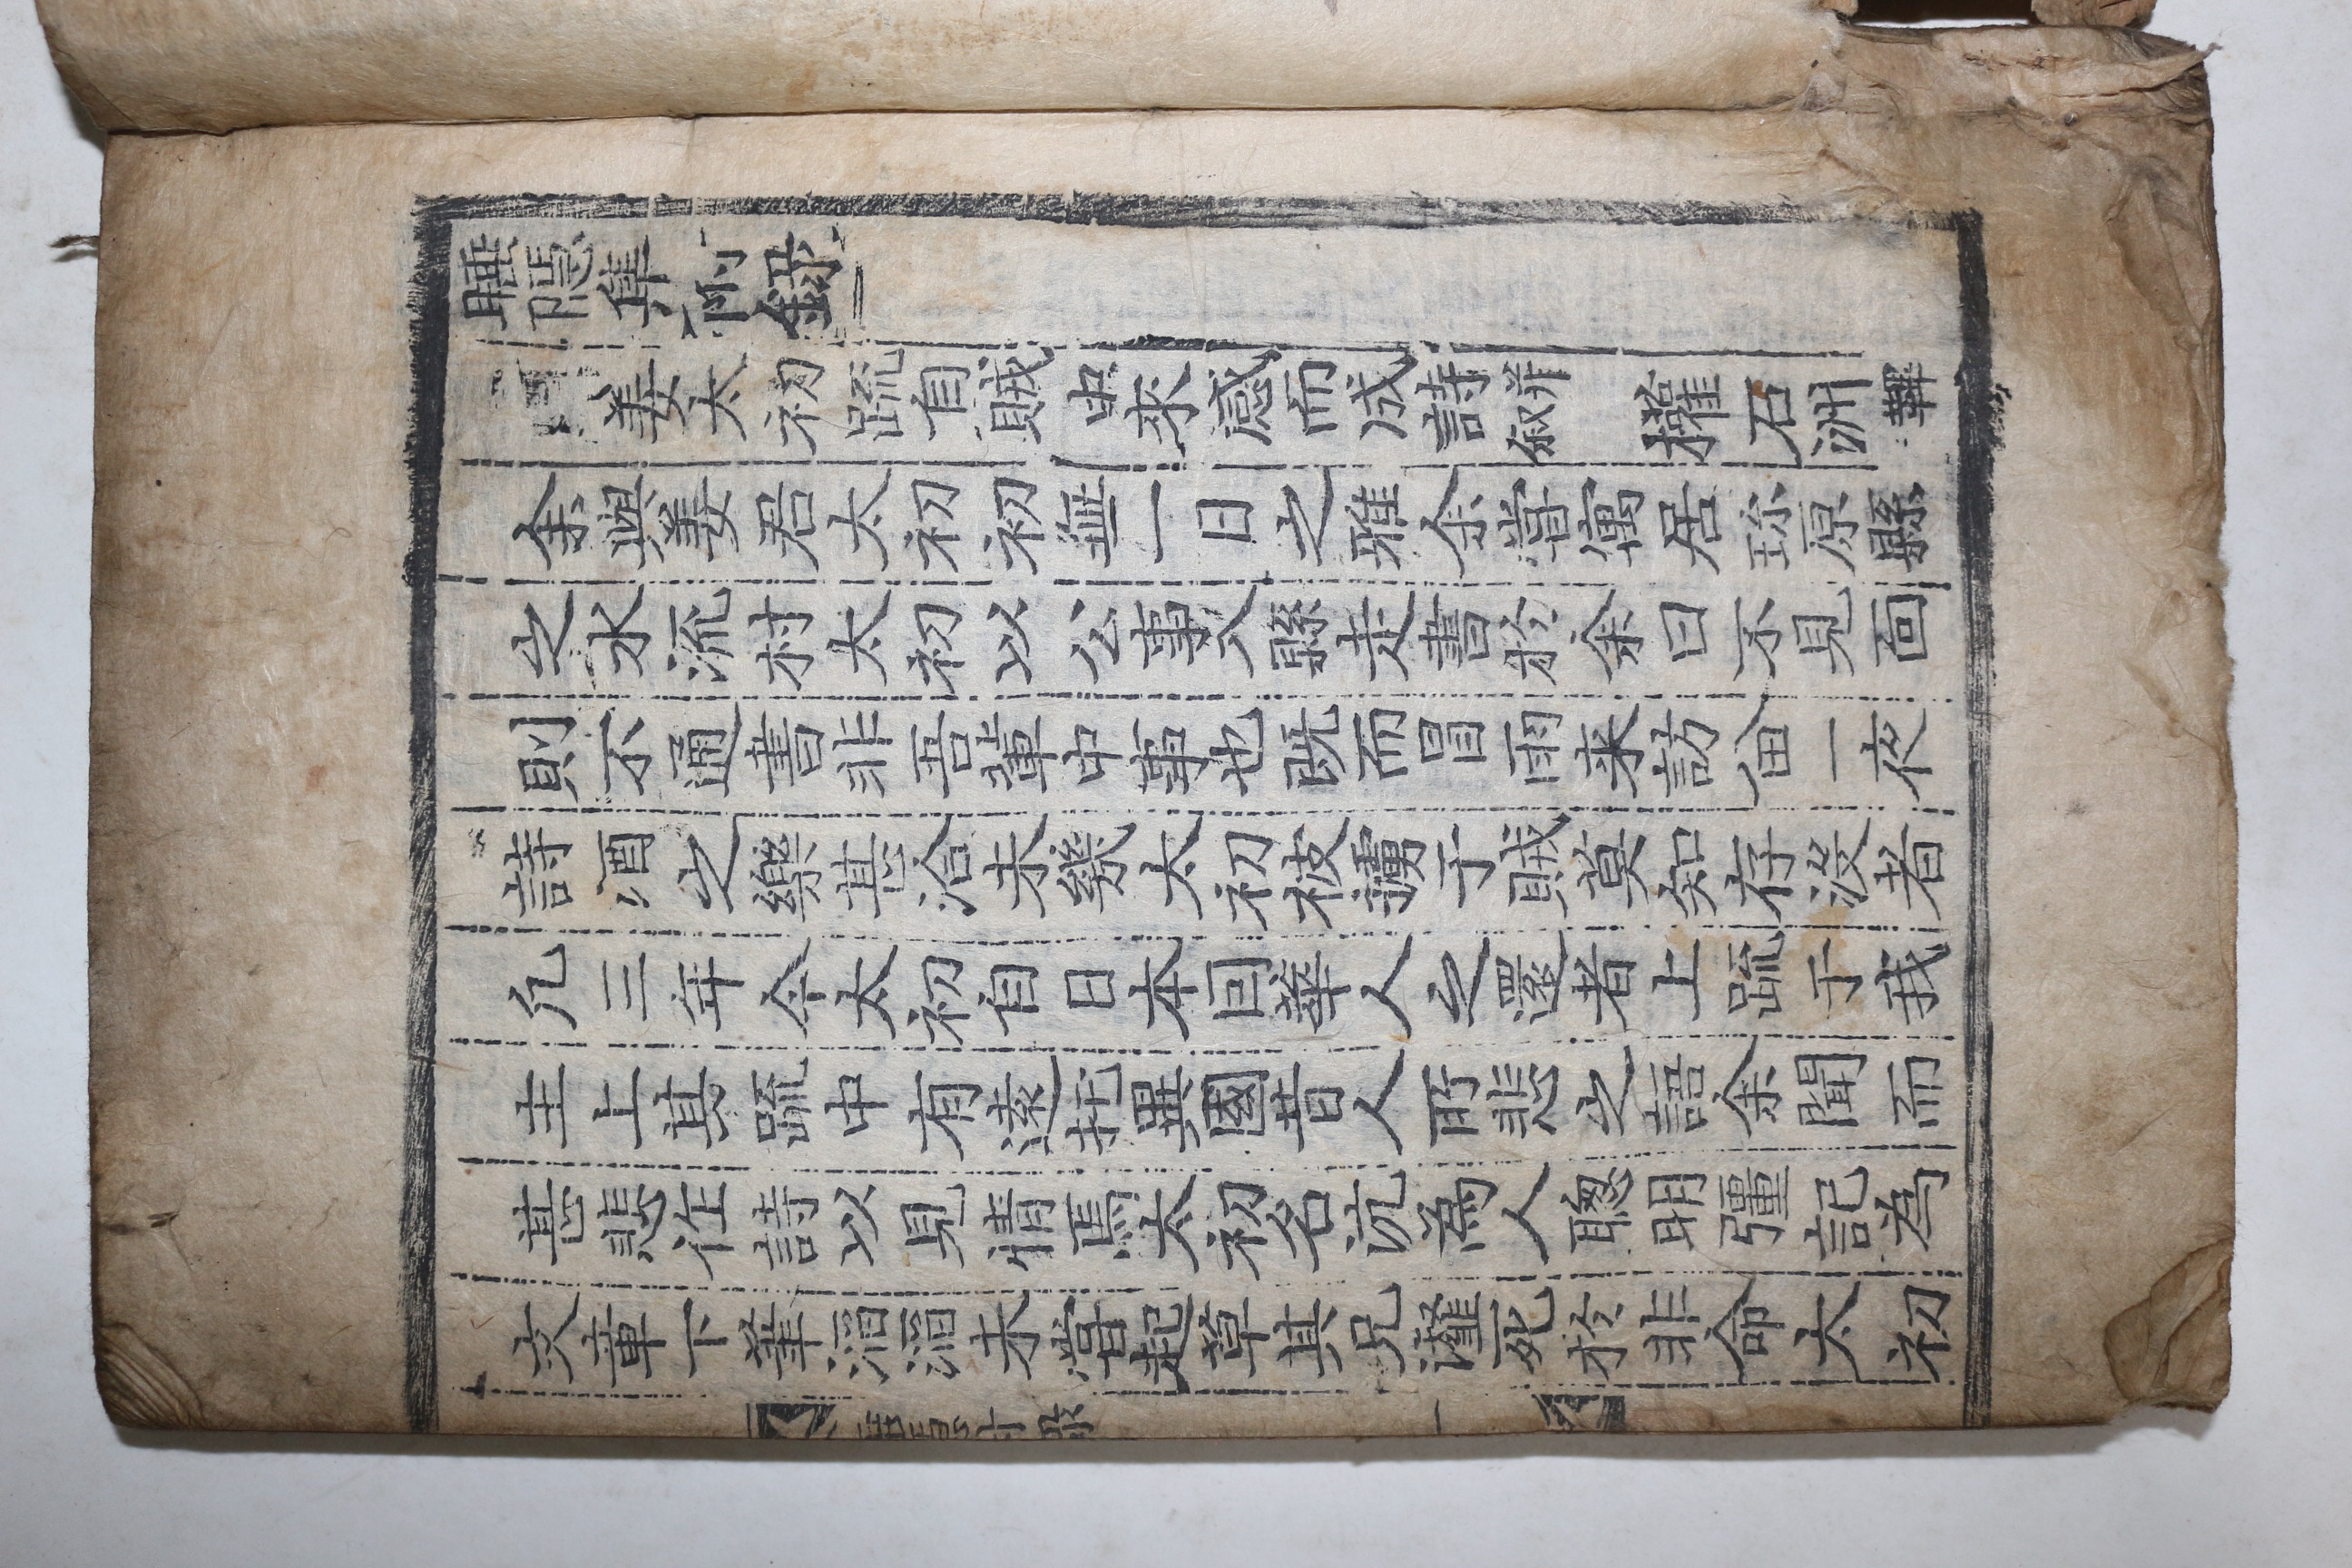 睡隱集附錄
姜太初疏自賊中來感而成詩并叙 權石洲韠
余與姜君太初初無一日之雅余嘗寓居珍原縣
之水流村太初以公事入縣走書於余曰不見面
則不通書非吾輩中事也旣而冒雨來訪留一夜
詩酒之樂甚洽未幾太初被虜于賊莫知存沒者
凡三年今太初自日本囙華人之還者上疏于我
主上其疏中有遠托異國昔人所悲之語余聞而
甚悲作詩以見情焉太初名沆爲人聰明彊記爲
文章下筆滔滔未嘗起草其兄濬死於非命太初